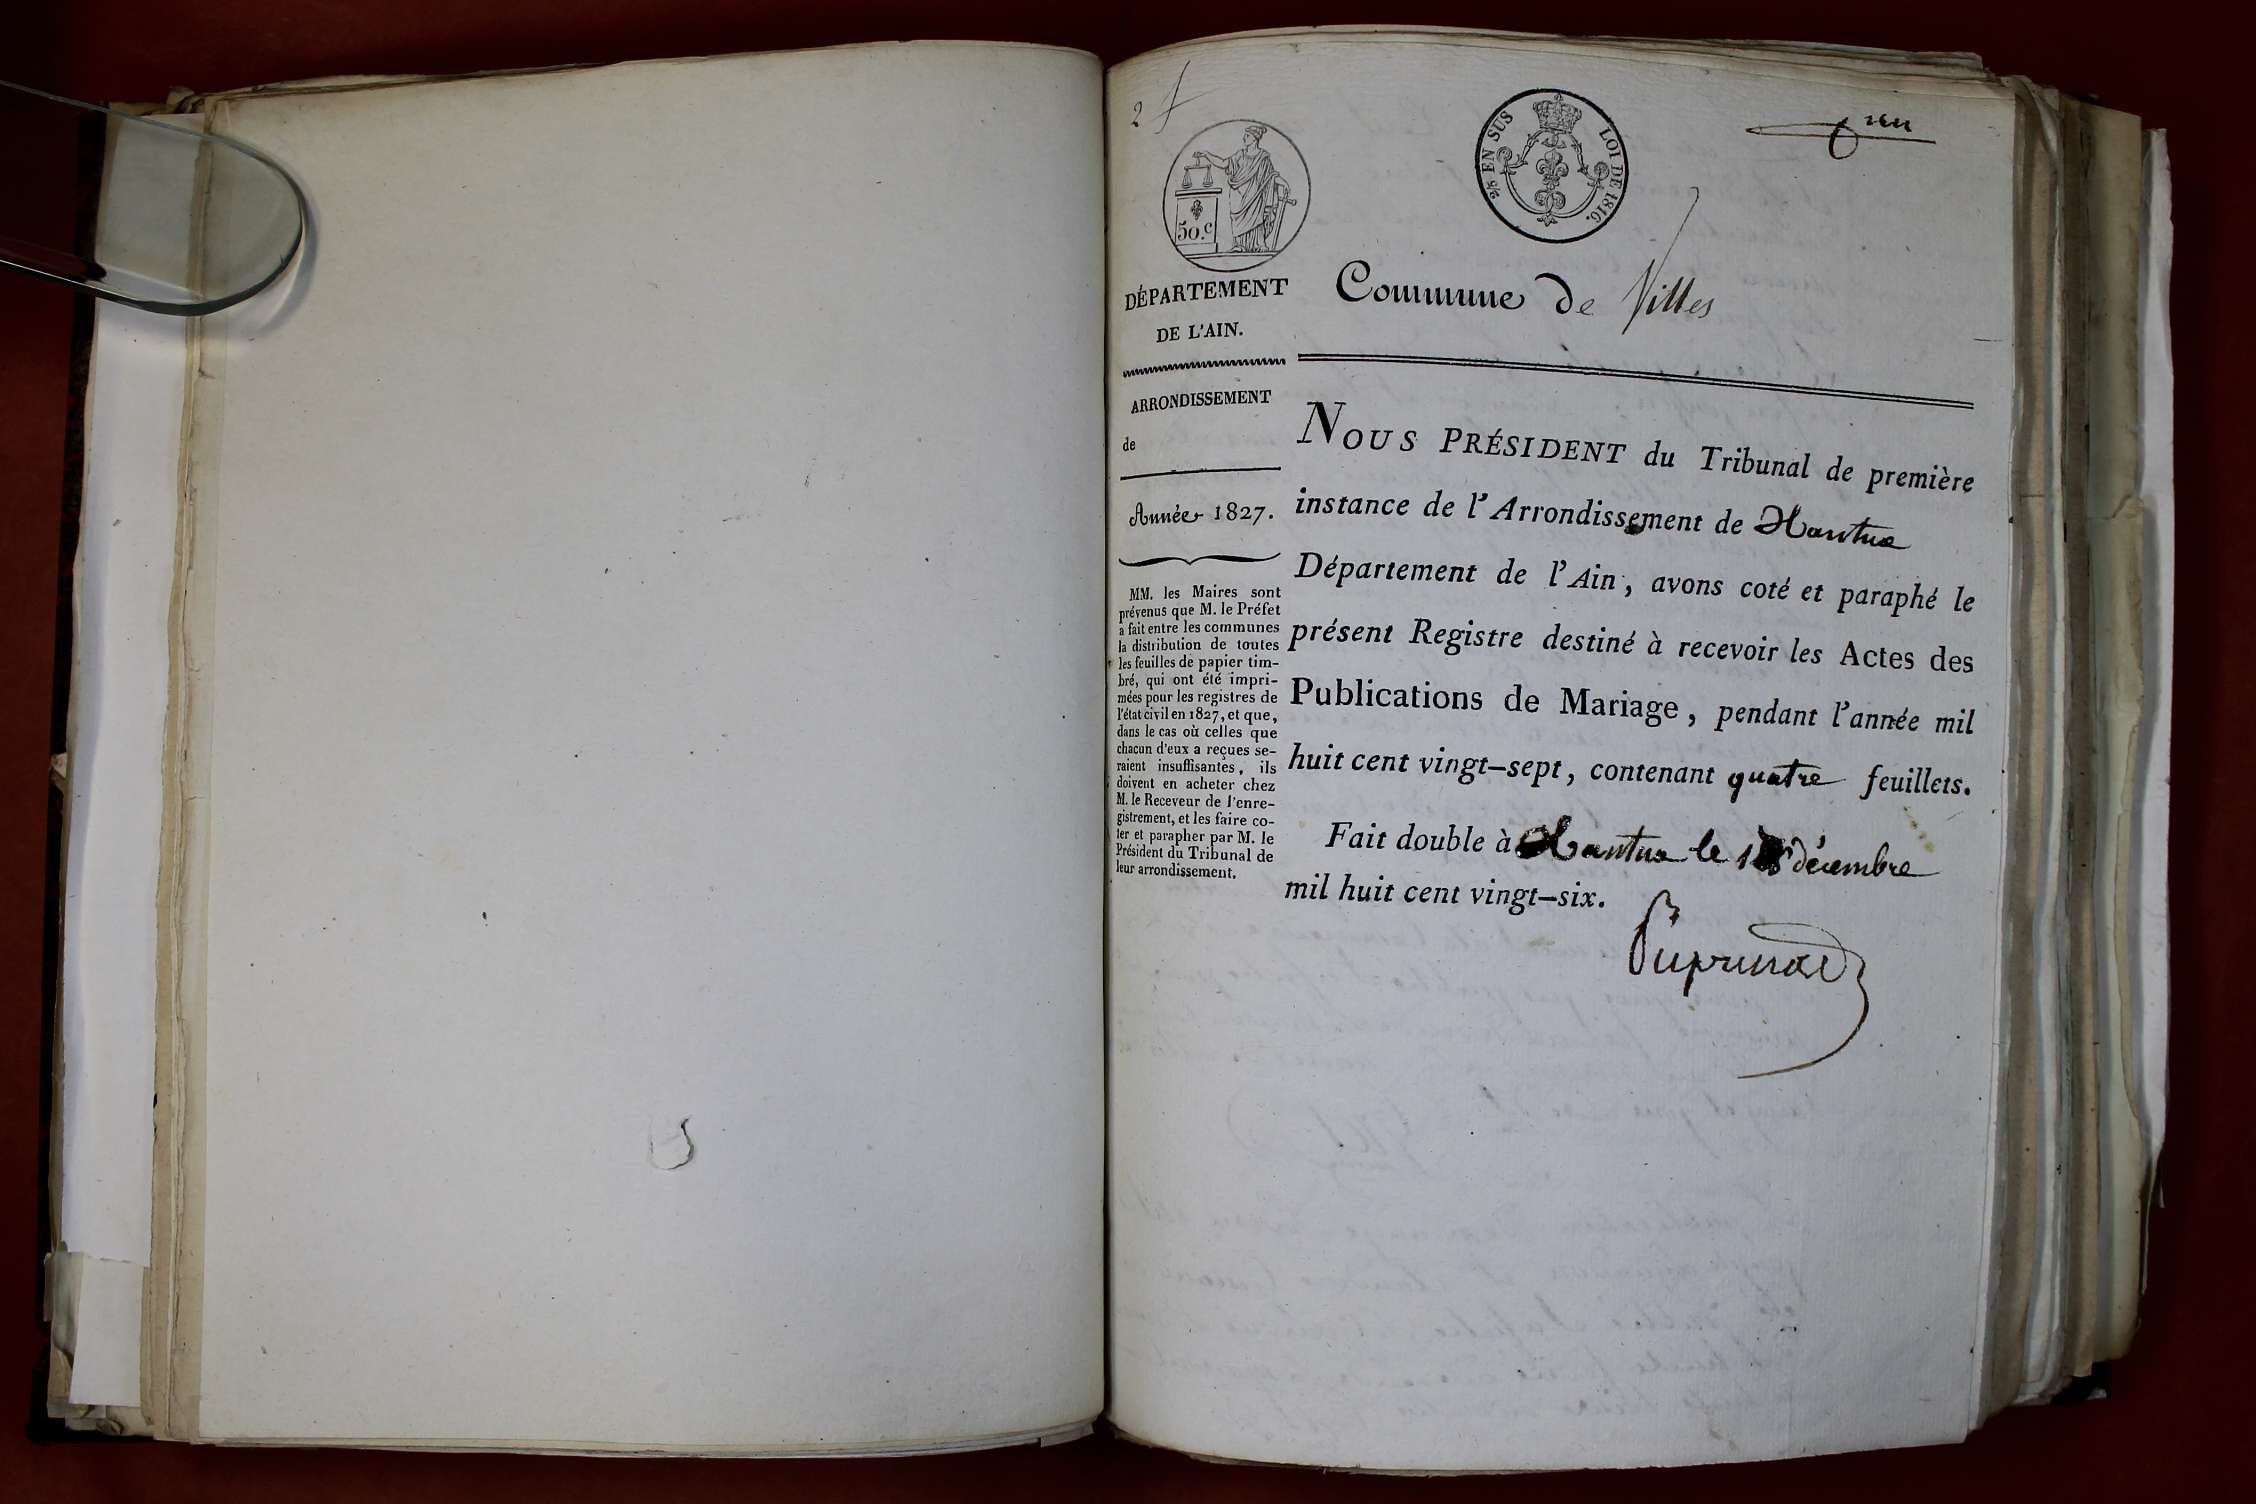 2
50.c
2/5 EN SUS LOI DE 1816.
DÉPARTEMENT
DE L'AIN.
ARRONDISSEMENT
de
Année 1827.
MM. les Maires sont
prévenus que M. le Préfet
a fait entre les communes
la distribution de toutes
les feuilles de papier tim-
bré, qui ont été impri-
mées pour les registres de
l'état civil en 1827, et que,
dans le cas où celles que
chacun d'eux a reçues se-
raient insuffisantes, ils
doivent en acheter chez
M. le Receveur de l'enre-
gistrement, et les faire co-
ter et parapher par M. le
Président du Tribunal de
leur arrondissement.
Commune de Villes
NOUS PRÉSIDENT du Tribunal de première
instance de l'Arrondissement de Nantua
Département de l'Ain, avons coté et paraphé le
présent Registre destiné à recevoir les Actes des
Publications de Mariage, pendant l'année mil
huit cent vingt-sept, contenant quatre feuillets.
Fait double à Nantua le décembre
mil huit cent vingt-six.